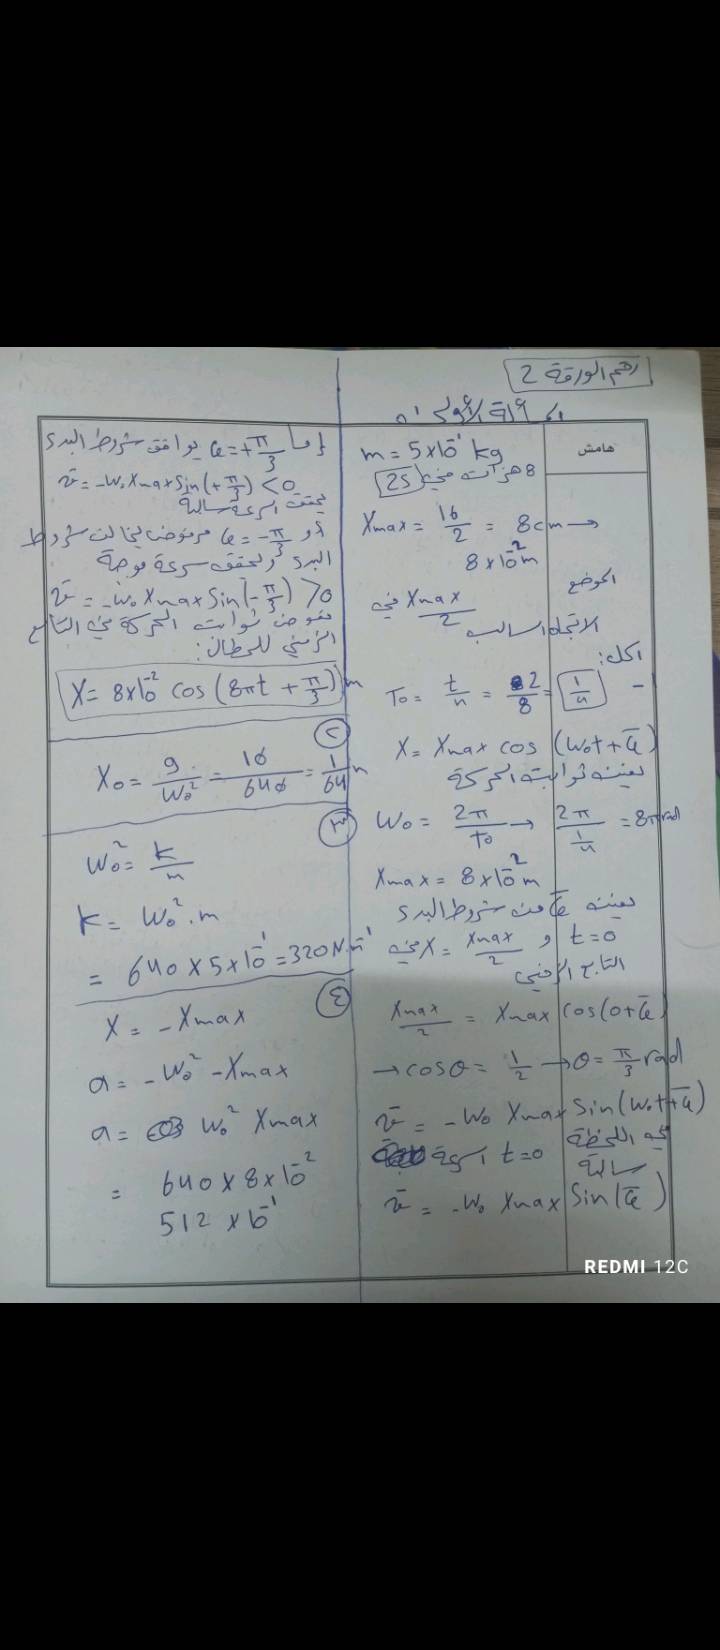 رقم الورقة 2
المسألة الأولى:
هامش
m = 5×10⁻¹ kg
8 هزات في 2s
Xmax = 16/2 = 8cm →
8×10⁻² m
الموضع
Xmax/2 في
الاتجاه السالب
الحل:
T₀ = t/n = 2/8 = 1/4
X = Xmax cos (ω₀t + φ̄)
نعين ثوابت الحركة
ω₀ = 2π/T₀ → 2π/(1/4) = 8π rad
Xmax = 8×10⁻² m
نعين φ̄ من شروط البدء
t=0 و X = Xmax/2 في
التابع الزمني
Xmax/2 = Xmax cos(0+φ̄)
→ cosθ = 1/2 → θ = π/3 rad
v̄ = -ω₀ Xmax sin(ω₀t+φ̄)
في اللحظة t=0 السرعة
سالبة
v̄ = -ω₀ Xmax Sin(φ̄)
إما φ = +π/3 يوافق شروط البدء
v̄ = -ω₀ Xmax Sin(+π/3) < 0
يحقق السرعة سالبة
أو φ = -π/3 مرفوض يخالف شروط
البدء ويحقق سرعة موجبة
v̄ = -ω₀ Xmax Sin(-π/3) > 0
نعوض ثوابت الحركة في التابع
الزمني للمطال:
X = 8×10⁻² cos (8πt + π/3) m
٢
X₀ = g/ω₀² = 10/640 = 1/64 m
٣
ω₀² = k/m
k = ω₀² . m
= 640 × 5×10⁻¹ = 320 N.m⁻¹
٤
X = - Xmax
a = -ω₀² - Xmax
a = ω₀² Xmax
= 640 × 8×10⁻²
512 × 10⁻¹
REDMI 12C